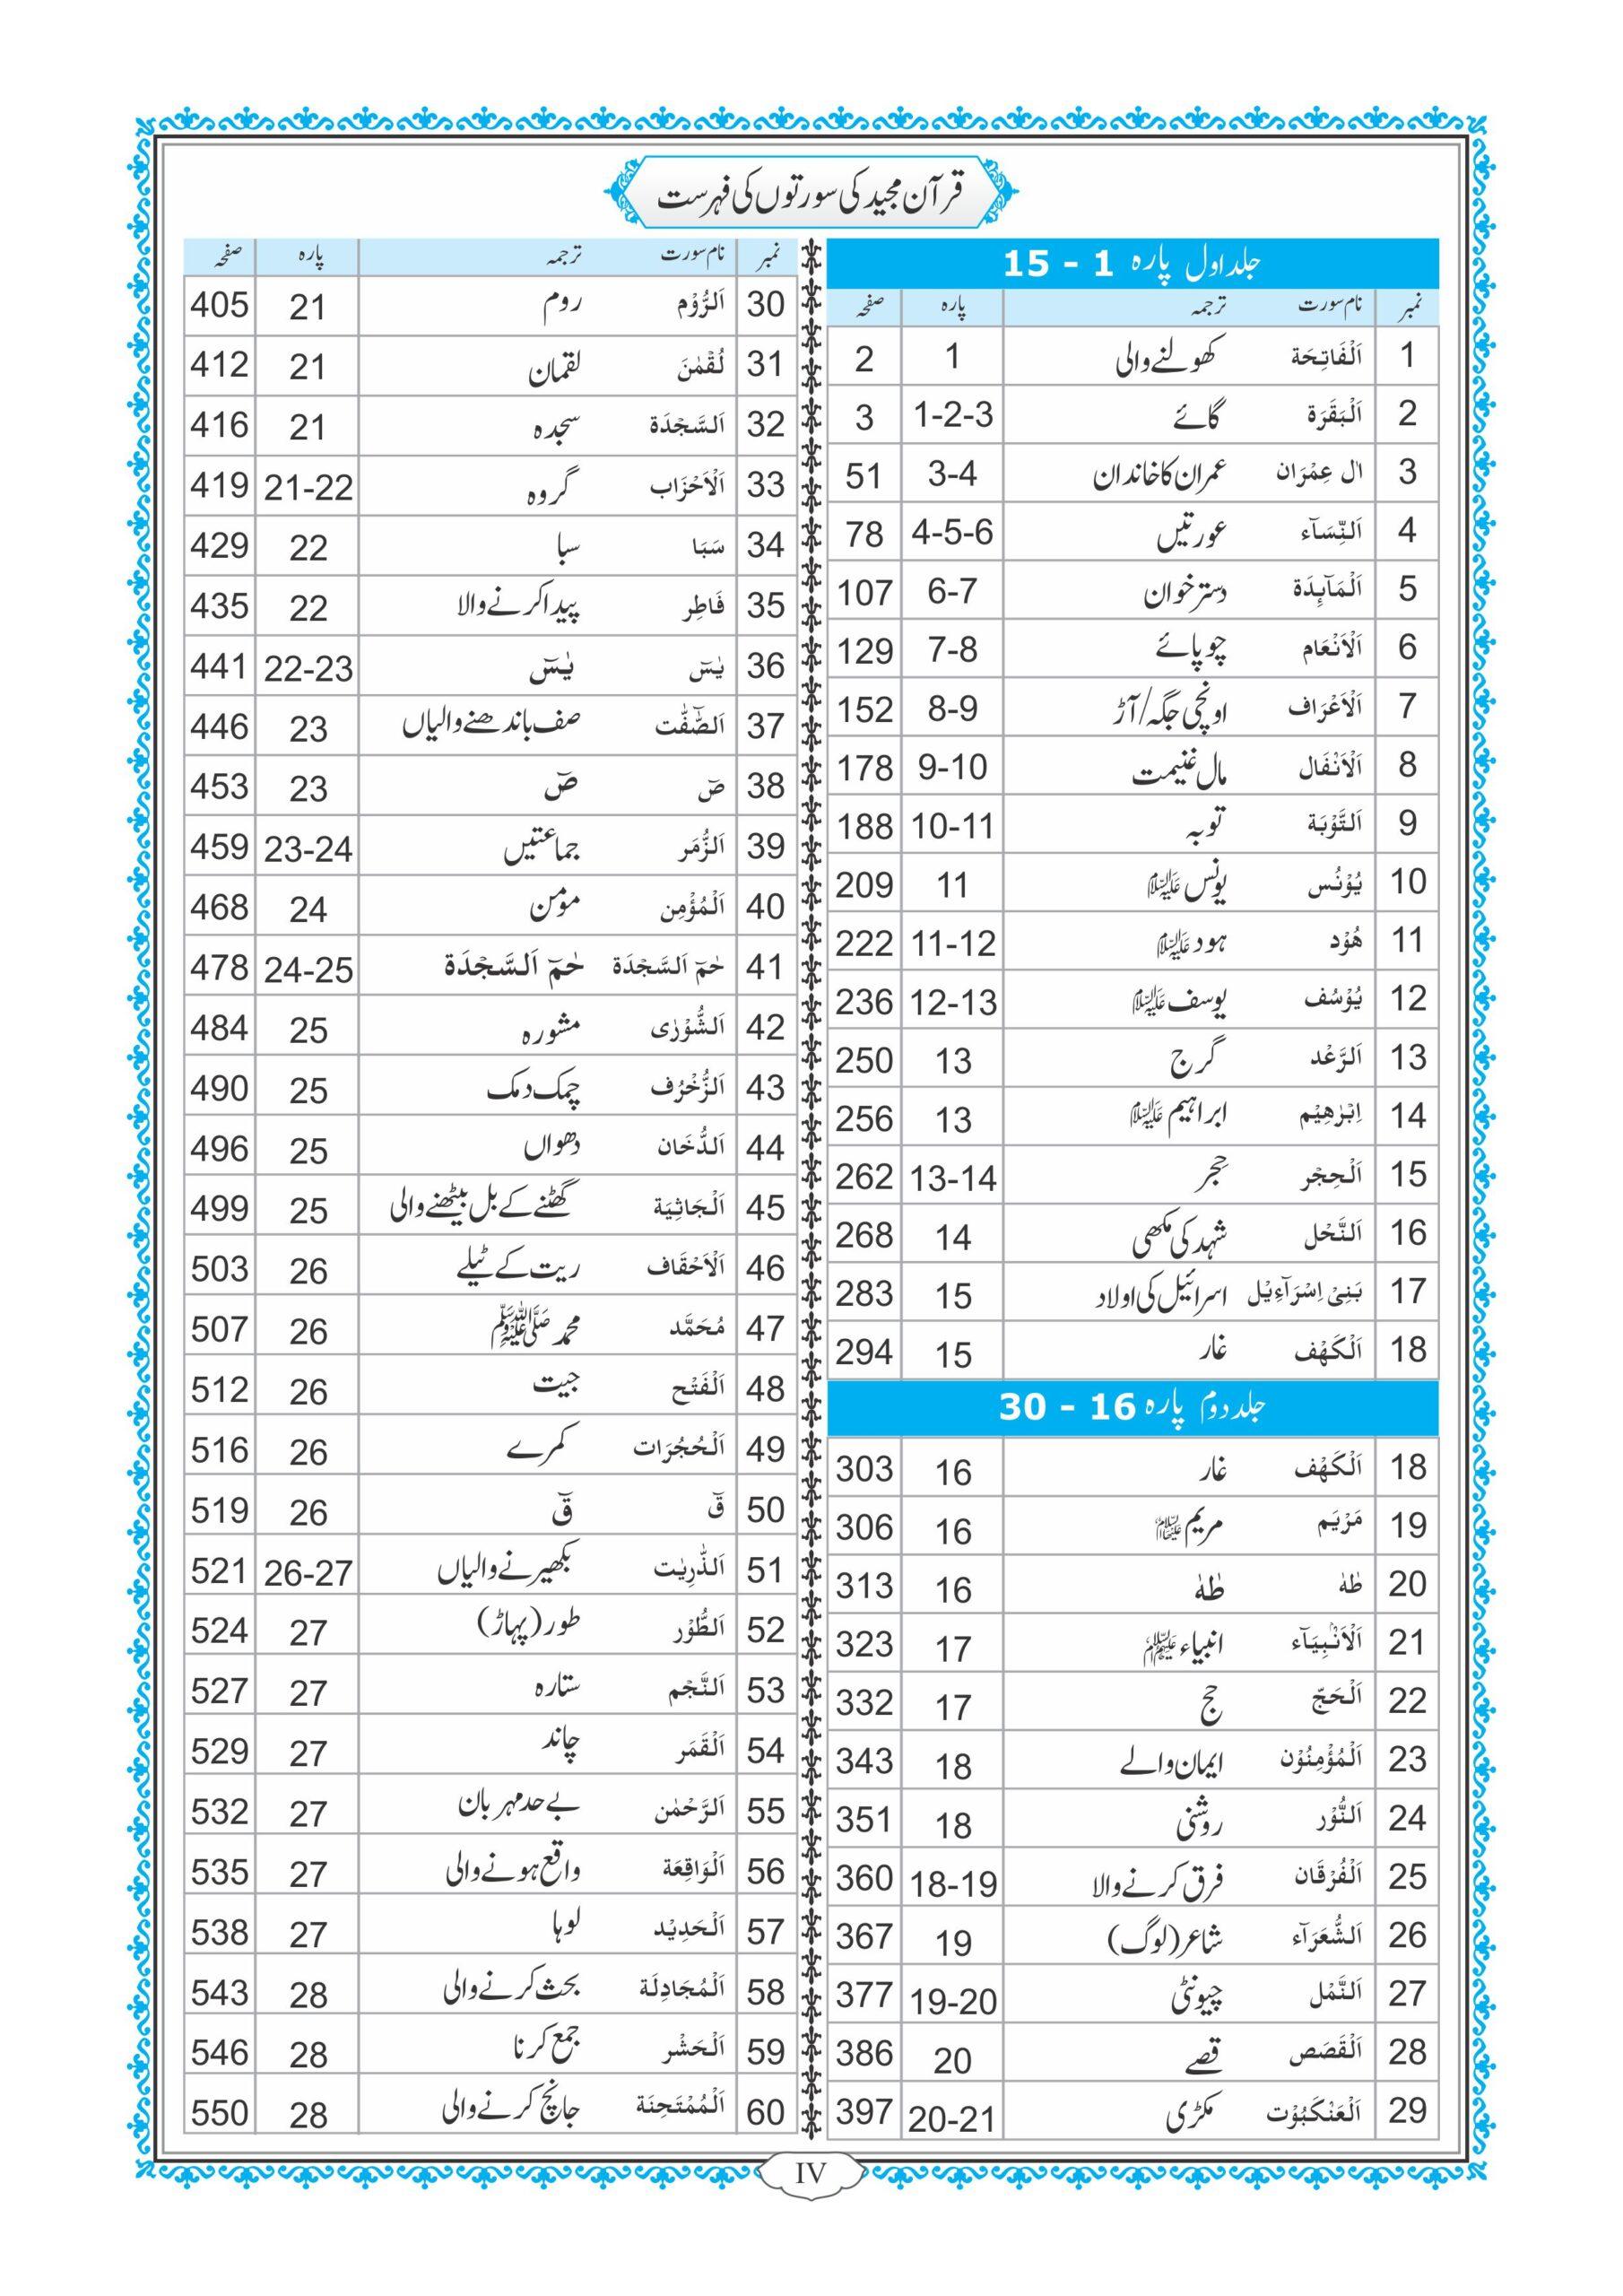 قرآن مجید کی سورتوں کی فہرست
جلد اول پارہ 1 - 15
نمبر نام سورت ترجمہ پارہ صفحہ
1 اَلْفَاتِحَة کھولنے والی 1 2
2 اَلْبَقَرَة گائے 1-2-3 3
3 اٰل عِمْرَان عمران کا خاندان 3-4 51
4 اَلنِّسَآء عورتیں 4-5-6 78
5 اَلْمَآئِدَة دسترخوان 6-7 107
6 اَلْاَنْعَام چوپائے 7-8 129
7 اَلْاَعْرَاف اونچی جگہ/آڑ 8-9 152
8 اَلْاَنْفَال مال غنیمت 9-10 178
9 اَلتَّوْبَة توبہ 10-11 188
10 يُوْنُس یونس علیہ السلام 11 209
11 هُوْد ہود علیہ السلام 11-12 222
12 يُوْسُف یوسف علیہ السلام 12-13 236
13 اَلرَّعْد گرج 13 250
14 اِبْرٰهِيْم ابراہیم علیہ السلام 13 256
15 اَلْحِجْر حِجر 13-14 262
16 اَلنَّحْل شہد کی مکھی 14 268
17 بَنِیْ اِسْرَآءِيْل اسرائیل کی اولاد 15 283
18 اَلْكَهْف غار 15 294
جلد دوم پارہ 16 - 30
18 اَلْكَهْف غار 16 303
19 مَرْيَم مریم علیہا السلام 16 306
20 طٰهٰ طٰهٰ 16 313
21 اَلْاَنْۢبِيَآء انبیاء علیہم السلام 17 323
22 اَلْحَجّ حج 17 332
23 اَلْمُؤْمِنُوْن ایمان والے 18 343
24 اَلنُّوْر روشنی 18 351
25 اَلْفُرْقَان فرق کرنے والا 18-19 360
26 اَلشُّعَرَآء شاعر (لوگ) 19 367
27 اَلنَّمْل چیونٹی 19-20 377
28 اَلْقَصَص قصے 20 386
29 اَلْعَنْكَبُوْت مکڑی 20-21 397
نمبر نام سورت ترجمہ پارہ صفحہ
30 اَلرُّوْم روم 21 405
31 لُقْمٰنَ لقمان 21 412
32 اَلسَّجْدَة سجدہ 21 416
33 اَلْاَحْزَاب گروہ 21-22 419
34 سَبَا سبا 22 429
35 فَاطِر پیدا کرنے والا 22 435
36 يٰسٓ يٰسٓ 22-23 441
37 اَلصّٰٓفّٰت صف باندھنے والیاں 23 446
38 صٓ صٓ 23 453
39 اَلزُّمَر جماعتیں 23-24 459
40 اَلْمُؤْمِن مؤمن 24 468
41 حٰمٓ اَلسَّجْدَة حٰمٓ اَلسَّجْدَة 24-25 478
42 اَلشُّوْرٰی مشورہ 25 484
43 اَلزُّخْرُف چمک دمک 25 490
44 اَلدُّخَان دھواں 25 496
45 اَلْجَاثِيَة گھٹنے کے بل بیٹھنے والی 25 499
46 اَلْاَحْقَاف ریت کے ٹیلے 26 503
47 مُحَمَّد محمد ﷺ 26 507
48 اَلْفَتْح جیت 26 512
49 اَلْحُجُرَات کمرے 26 516
50 قٓ قٓ 26 519
51 اَلذّٰرِيٰت بکھیرنے والیاں 26-27 521
52 اَلطُّوْر طور (پہاڑ) 27 524
53 اَلنَّجْم ستارہ 27 527
54 اَلْقَمَر چاند 27 529
55 اَلرَّحْمٰن بے حد مہربان 27 532
56 اَلْوَاقِعَة واقع ہونے والی 27 535
57 اَلْحَدِيْد لوہا 27 538
58 اَلْمُجَادِلَة بحث کرنے والی 28 543
59 اَلْحَشْر جمع کرنا 28 546
60 اَلْمُمْتَحِنَة جانچ کرنے والی 28 550
IV